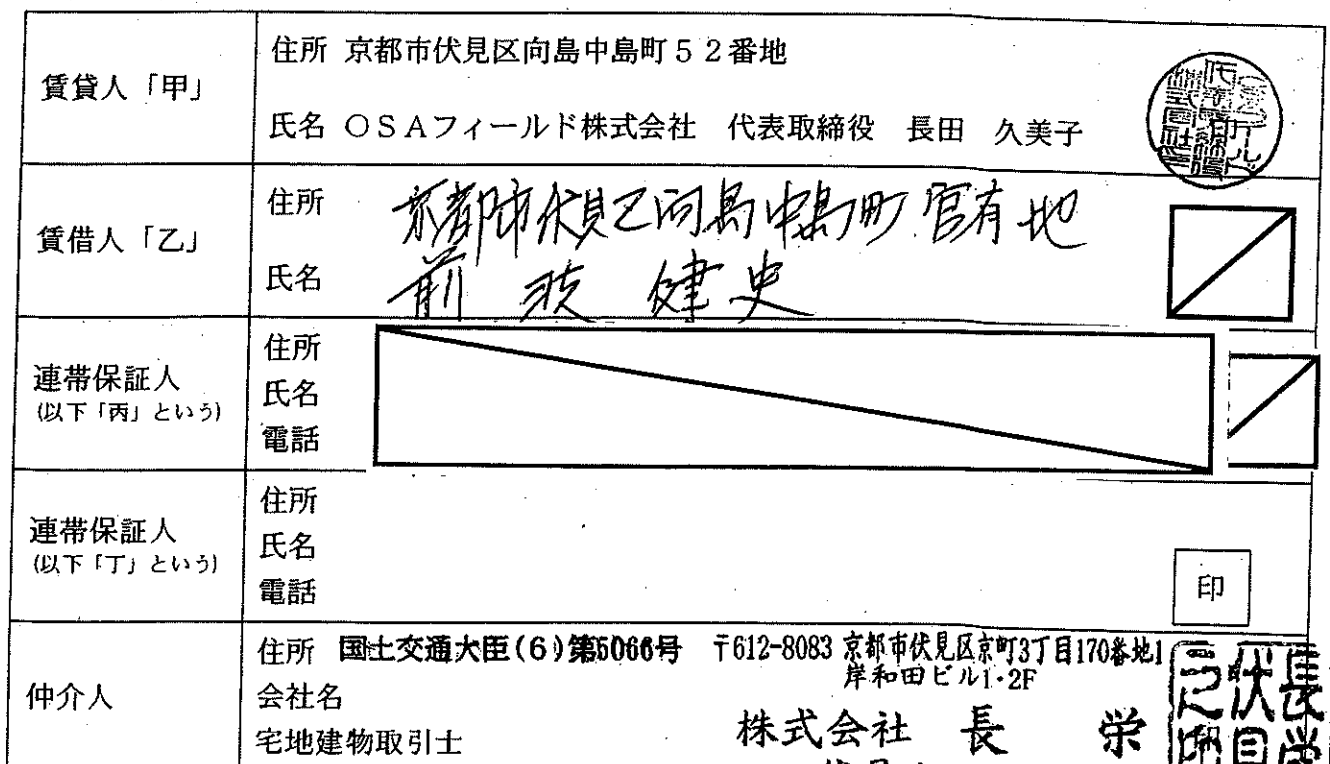 賃貸人「甲」
住所 京都市伏見区向島中島町52番地
氏名 OSAフィールド株式会社 代表取締役 長田 久美子
賃借人「乙」
住所 京都市伏見区向島中島町 官有地
氏名 前 健史
連帯保証人
(以下「丙」という)
住所
氏名
電話
連帯保証人
(以下「丁」という)
住所
氏名
電話
印
仲介人
住所 国土交通大臣(6)第5066号 〒612-8083 京都市伏見区京町3丁目170番地1
岸和田ビル1・2F
会社名
株式会社 長 栄
宅地建物取引士